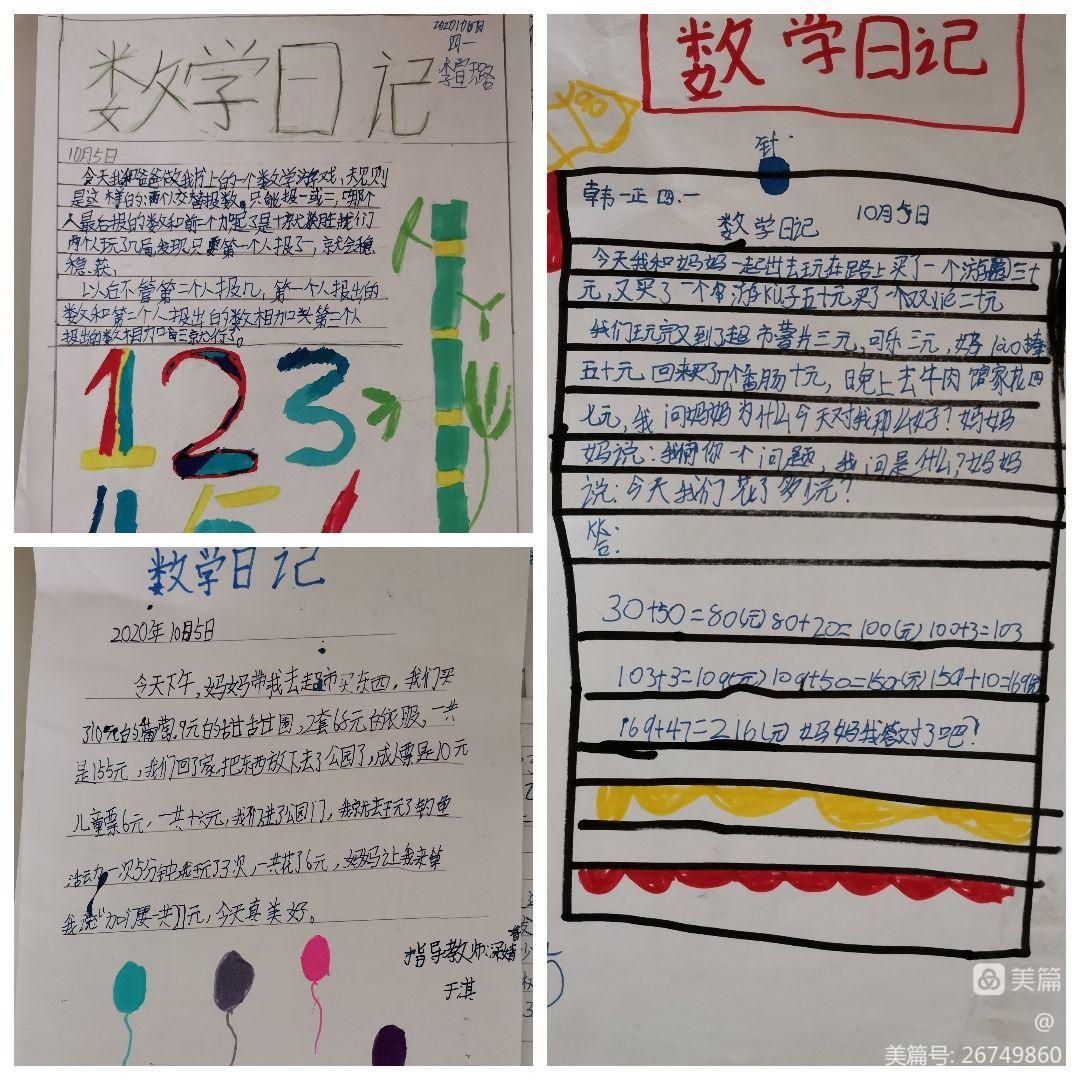 2020105日
四一
数学日记
10月5日
今天我和爸爸做我书上的一个数学游戏,规则
是这样的:两个人交替报数,只能报一或二,哪个
人最后报的数和前一个加起了是十就获胜,我们
两个人玩了几局,发现只要第一个人报了一,就会稳
稳获,
以后不管第二个人报几,第一个人报出的
数和第二个人报出的数相加
报出的数相加三就行了。
123
数学日记
2020年10月5日
今天下午,妈妈带我去超市买东西,我们买
了10元的葡萄,9元的甜甜圈,2套68元的衣服,一共
是155元,我们回了家,把东西放下去了公园了,成人票是10元
儿童票6元,一共十六元,我们进了公园门,我就去玩了钓鱼
活动一次5分钟我玩了3次,一共花了6元,妈妈让我来算
我说"加门票一共元,今天真美好。
指导教师:
于淇
数学日记
针
韩一正 四.一
10月5日
数学日记
今天我和妈妈一起出去玩在路上买了一个游三十
元,又买了一个游ku子五十元买了一个二十元
我们玩完又到了超市薯片三元,可乐三元,奶lao棒
五十元 回来买了个香肠十元,日晚上去牛肉馆家花四
七元,我问妈妈为什么今天对我那么好?妈妈
妈说:我问你一个问题,我问是什么?妈妈
说:今天我们花了多少元?
答:
30+50=80(元) 80+20=100(元) 100+3=103
103+3=109(元) 109+50=159(元) 159+10=169(元)
169+47=216(元) 妈妈我答对了吧?
美篇
@
美篇号: 26749860